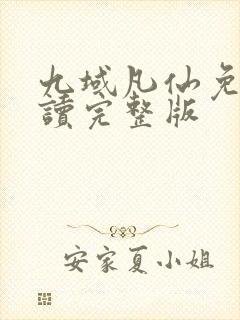 九域凡仙免
讀完整版
安家夏小姐